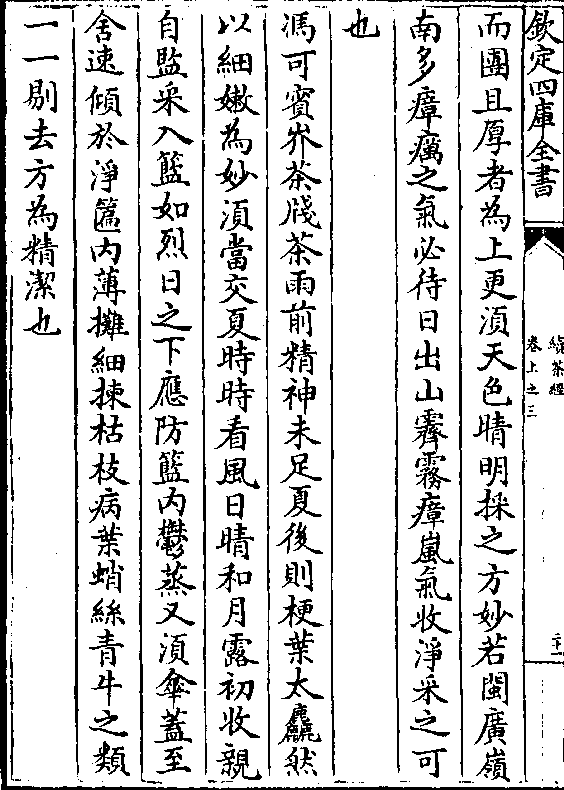 欽定四庫全書
續茶經
卷上之三
二十一
而團且厚者為上更須天色晴明採之方妙若閩廣嶺
南多瘴癘之氣必待日出山霽霧瘴嵐氣收淨采之可
也
馮可賓岕茶牋茶雨前精神未足夏後則梗葉太麤然
以細嫩為妙須當交夏時時看風日晴和月露初收親
自監采入籃如烈日之下應防籃内鬱蒸又須傘蓋至
舍速傾於淨匾内薄攤細揀枯枝病葉蛸絲青牛之類
一一剔去方為精潔也